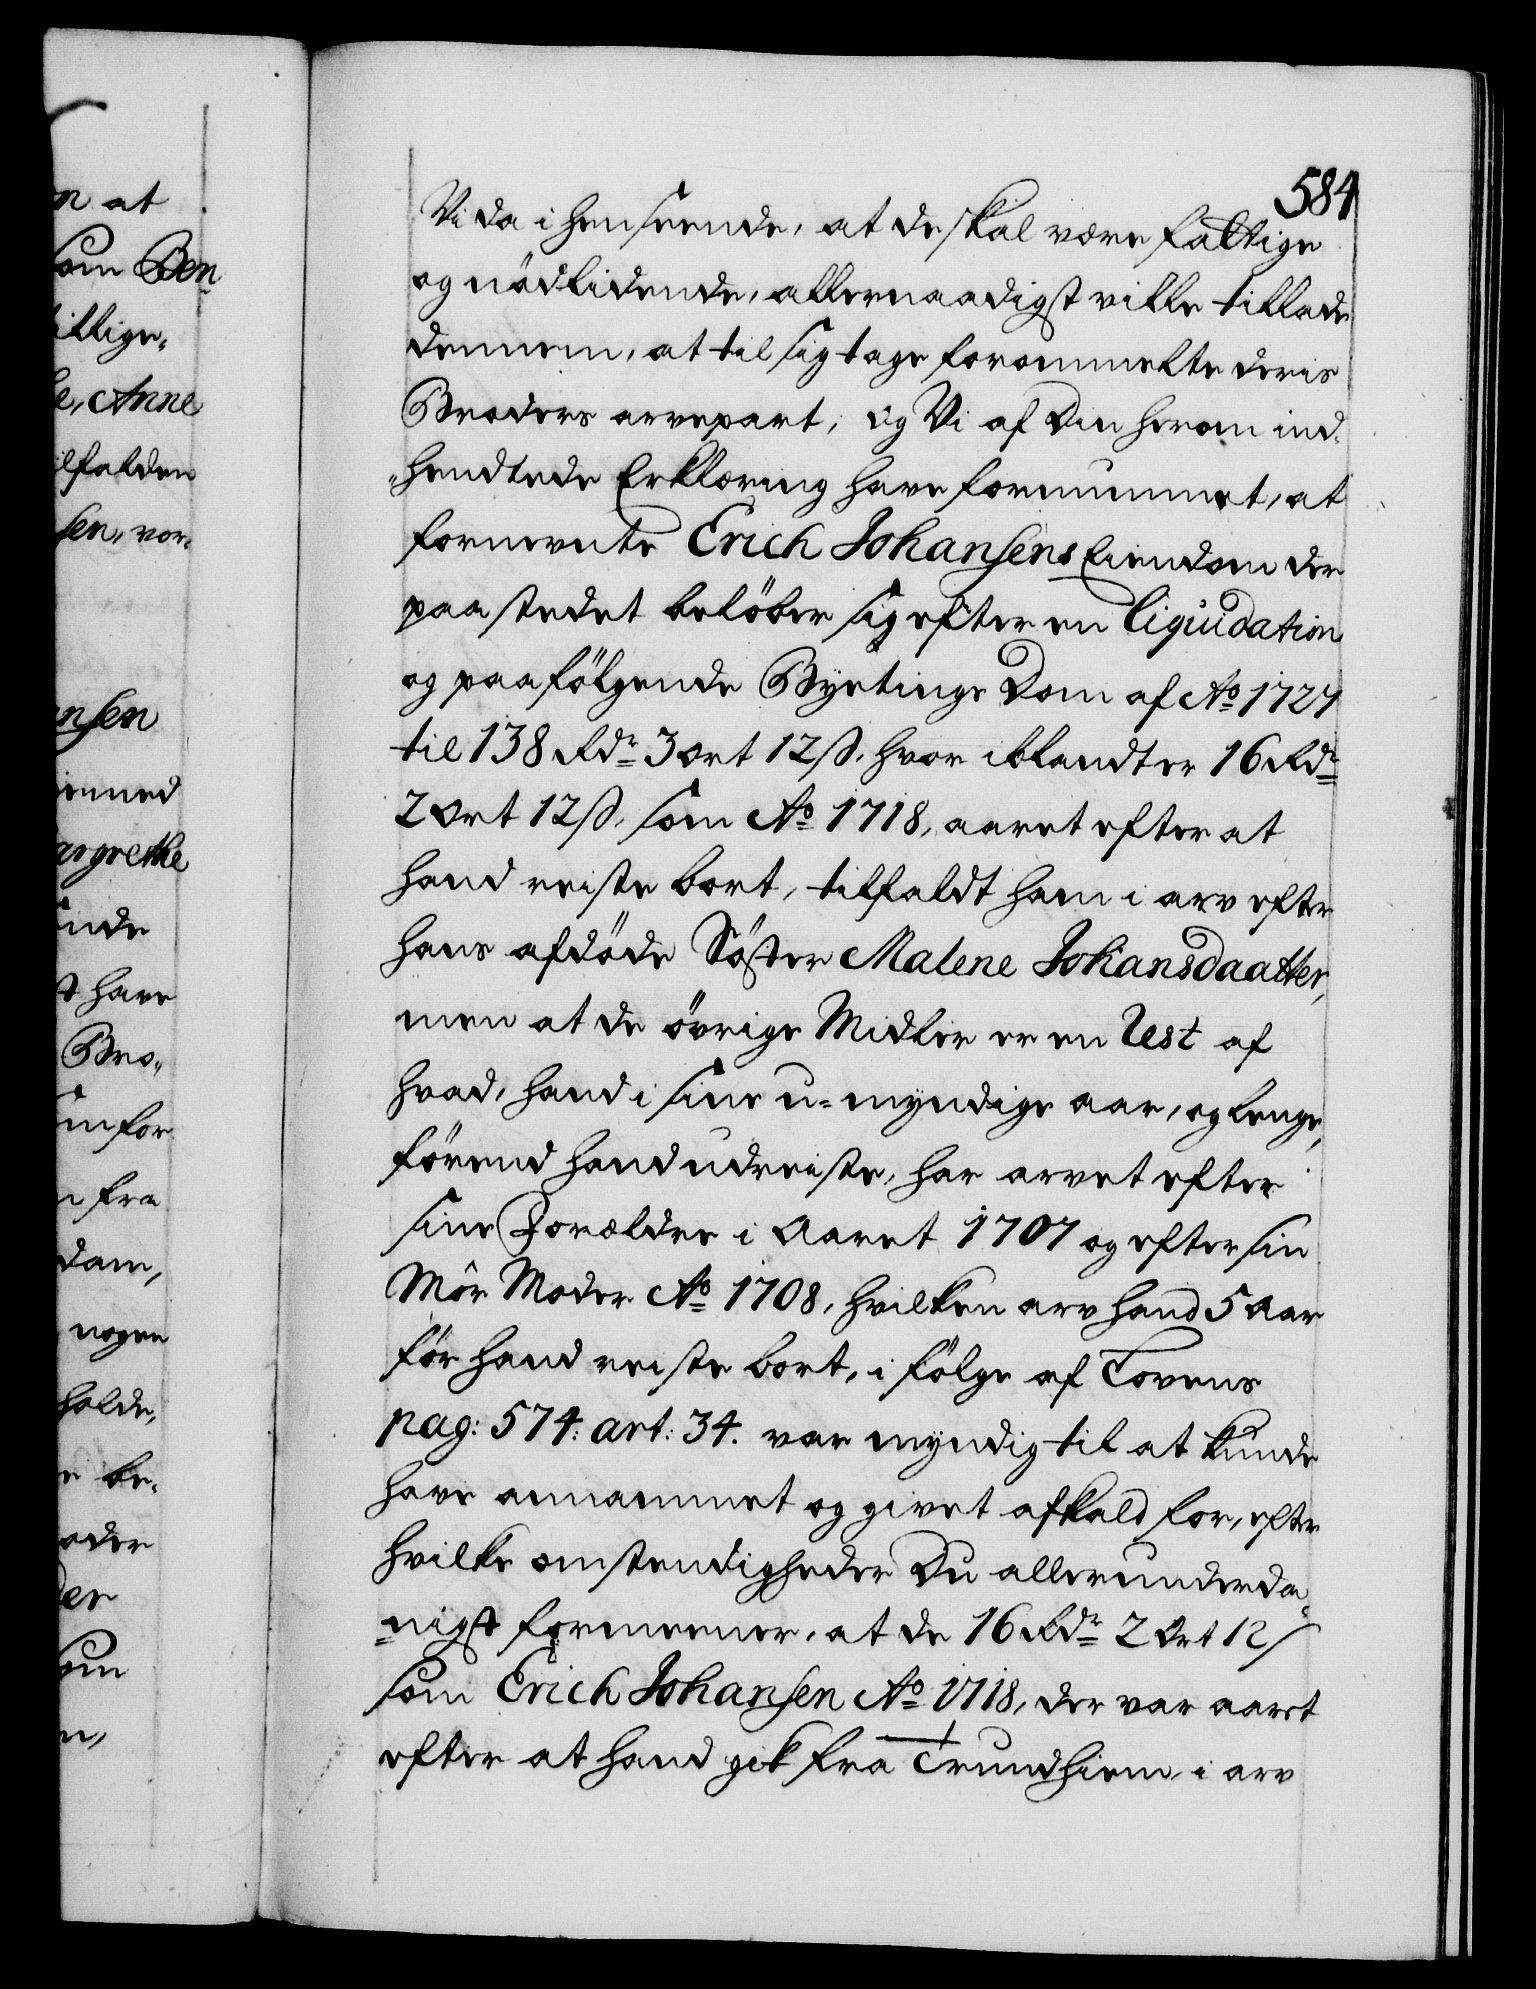 584
Vi da i henseende, at de skal være fattige
og nödlidende, allernaadigst ville tillade
dennem, at til sig tage forommelte deris
Broders arvepart, og Vi af Din herom ind-
hendtede Erklæring have fornummet, at
fornevnte Erich Johansens Eiendom der
paa stedet belöber sig efter en liqvidation
og paafölgende Byetings Dom af Ao 1727
til 138 Rdr 3 ort 12 ß, hvor iblandt er 16 Rdr
2 Ort 12 ß, som Ao 1718, aaret efter at
hand reiste bort, tilfaldt ham i arv efter
hans afdöde Söster Malene Johansdaatter,
men at de övrige Midler er en Rest af
hvad, hand i sine u-myndige aar, og lenge,
förend hand udreiste, har arvet efter
sine Forældre i Aaret 1707 og efter sin
Mör Moder Ao 1708, hvilken arv hand 5 Aar
för hand reiste bort, i fölge af Lovens
pag: 574: art: 34. var myndig til at kunde
have annammet og givet afkald for, efter
hvilke omstendigheder Du allerunderda-
nigst formeener, at de 16 Rdr 2 Ort 12 ß
som Erich Johansen Ao 1718, der var aaret
efter at hand gik fra Trundhiem, i arv
n at
som Ben-
tillige-
e, Anne
ilfalden
sen, vor-
nsen
iemed
argrethe
ünde
t have
Bro-
üm for
n fra
dam,
nogen
holde,
e be-
oder
der
som
n,